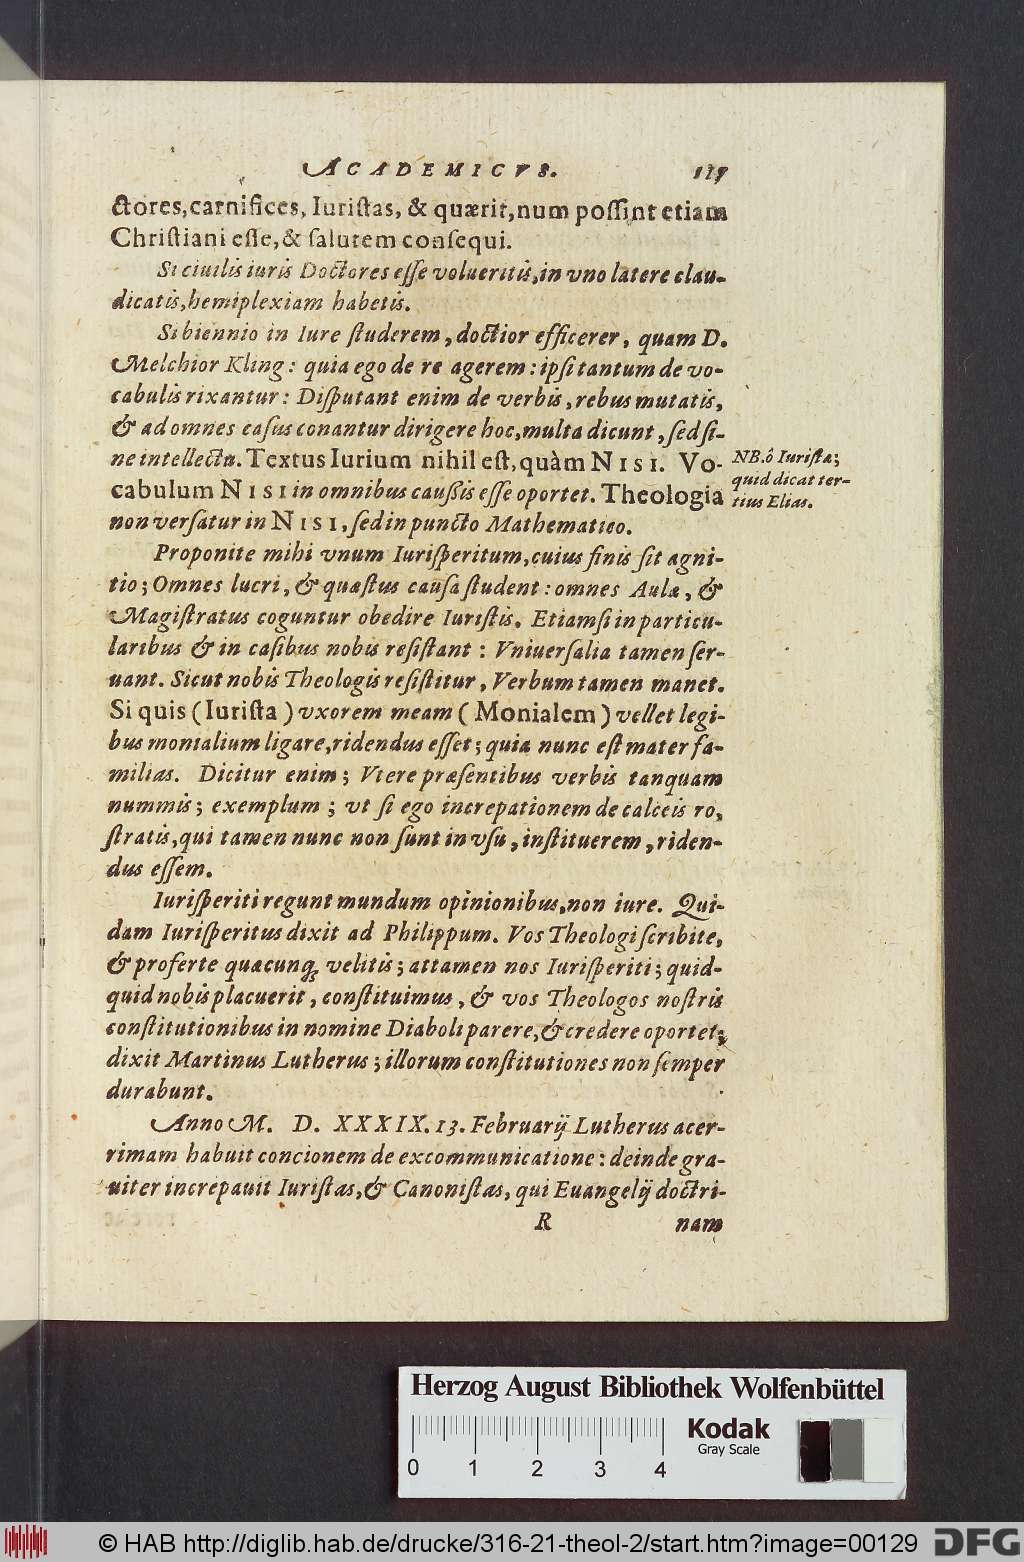 ACADEMICVS. 117
ctores, carnifices, Iuristas, & quærit, num possint etiam
Christiani esse, & salutem consequi.
Si ciuilis iuris Doctores esse volueritis, in vno latere clau-
dicatis, hemiplexiam habetis.
Si biennio in Iure studerem, doctior efficerer, quam D.
Melchior Kling: quia ego de re agerem: ipsi tantum de vo-
cabulis rixantur: Disputant enim de verbis, rebus mutatis,
& ad omnes casus conantur dirigere hoc, multa dicunt, sed si-
ne intellectu. Textus Iurium nihil est, quàm NISI. Vo-
cabulum NISI in omnibus caussis esse oportet. Theologia
non versatur in NISI, sed in puncto Mathematico.
NB. ô Iuristæ;
quid dicat ter-
tius Elias.
Proponite mihi vnum Iurisperitum, cuius finis sit agni-
tio; Omnes lucri, & quæstus causa student: omnes Aulæ, &
Magistratus coguntur obedire Iuristis. Etiamsi in particu-
laribus & in casibus nobis resistant: Vniuersalia tamen ser-
uant. Sicut nobis Theologis resistitur, Verbum tamen manet.
Si quis (Iurista) vxorem meam (Monialem) vellet legi-
bus monialium ligare, ridendus esset; quia nunc est mater fa-
milias. Dicitur enim; Vtere præsentibus verbis tanquam
nummis; exemplum; vt si ego increpationem de calceis ro-
stratis, qui tamen nunc non sunt in vsu, instituerem, riden-
dus essem.
Iurisperiti regunt mundum opinionibus, non iure. Qui-
dam Iurisperitus dixit ad Philippum. Vos Theologi scribite,
& proferte quæcunq; velitis; attamen nos Iurisperiti; quid-
quid nobis placuerit, constituimus, & vos Theologos nostris
constitutionibus in nomine Diaboli parere, & credere oportet;
dixit Martinus Lutherus; illorum constitutiones non semper
durabunt.
Anno M. D. XXXIX. 13. Februarij Lutherus acer-
rimam habuit concionem de excommunicatione: deinde gra-
uiter increpauit Iuristas, & Canonistas, qui Euangelij doctri-
R nam
Herzog August Bibliothek Wolfenbüttel
0 1 2 3 4
Kodak
Gray Scale
© HAB http://diglib.hab.de/drucke/316-21-theol-2/start.htm?image=00129
DFG